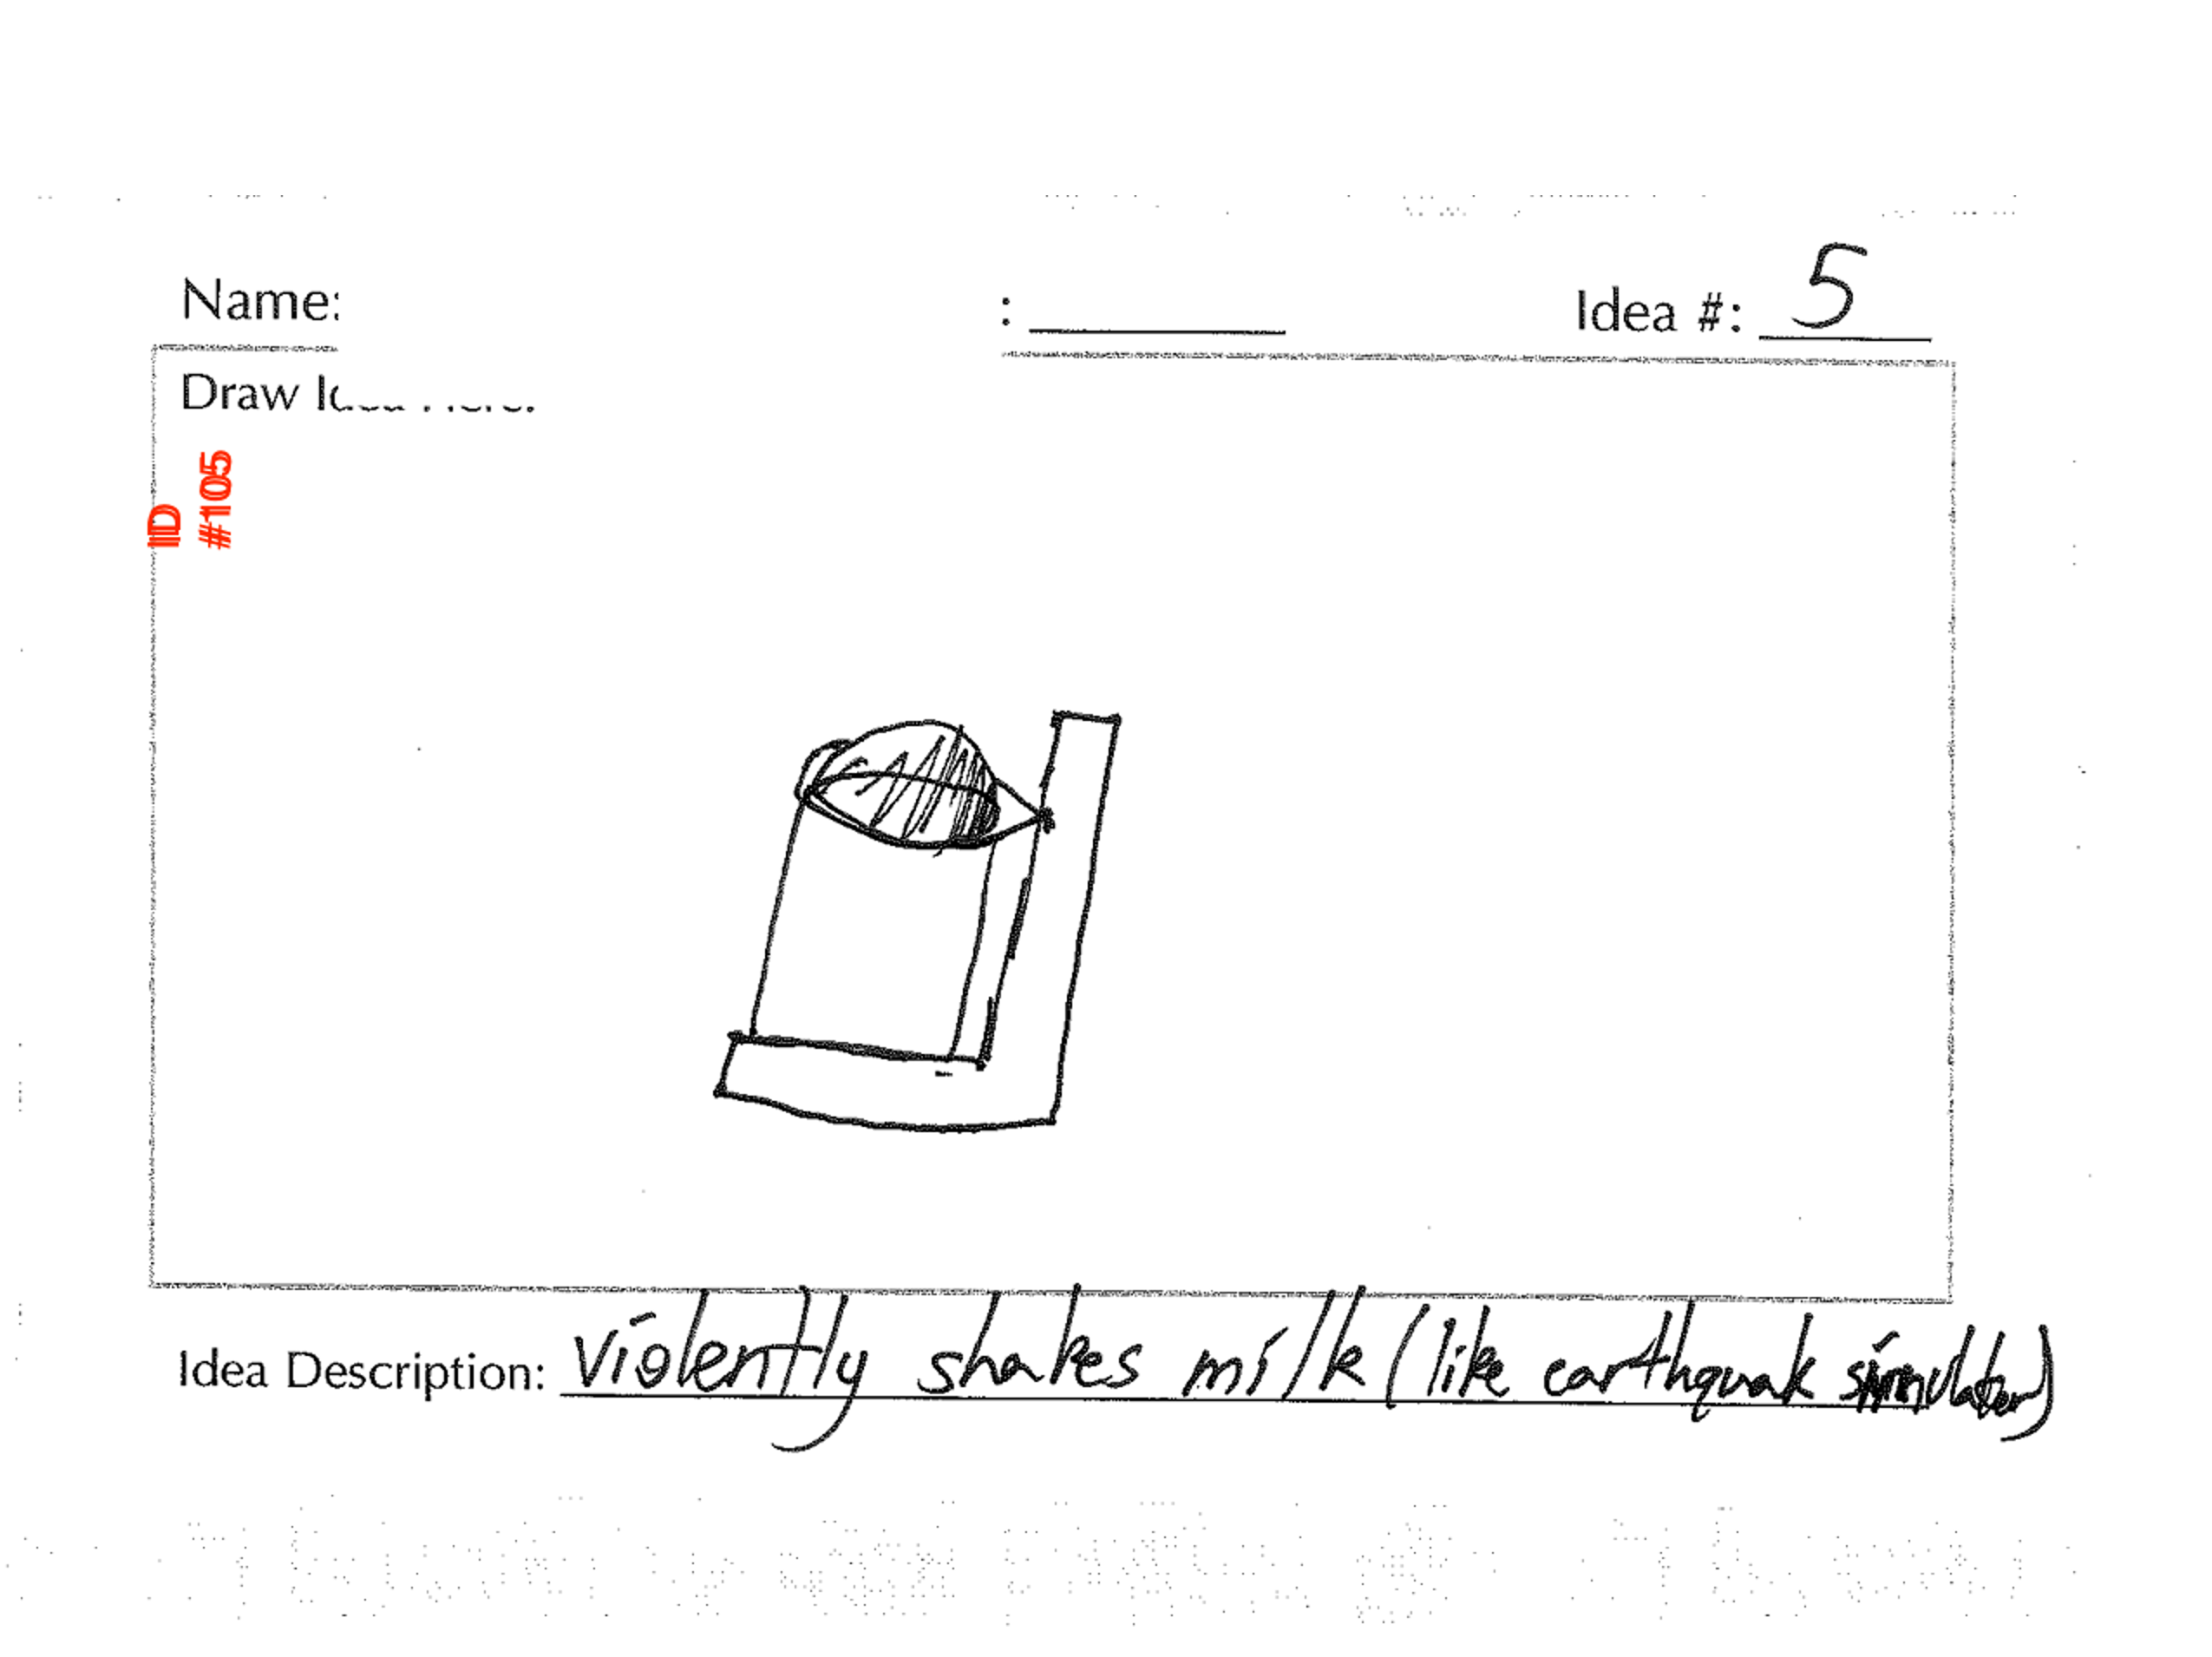 Name:
: Idea #: 5
Draw Idea Here:
ID
#105
Idea Description: violently shakes milk (like earthquak simulater)